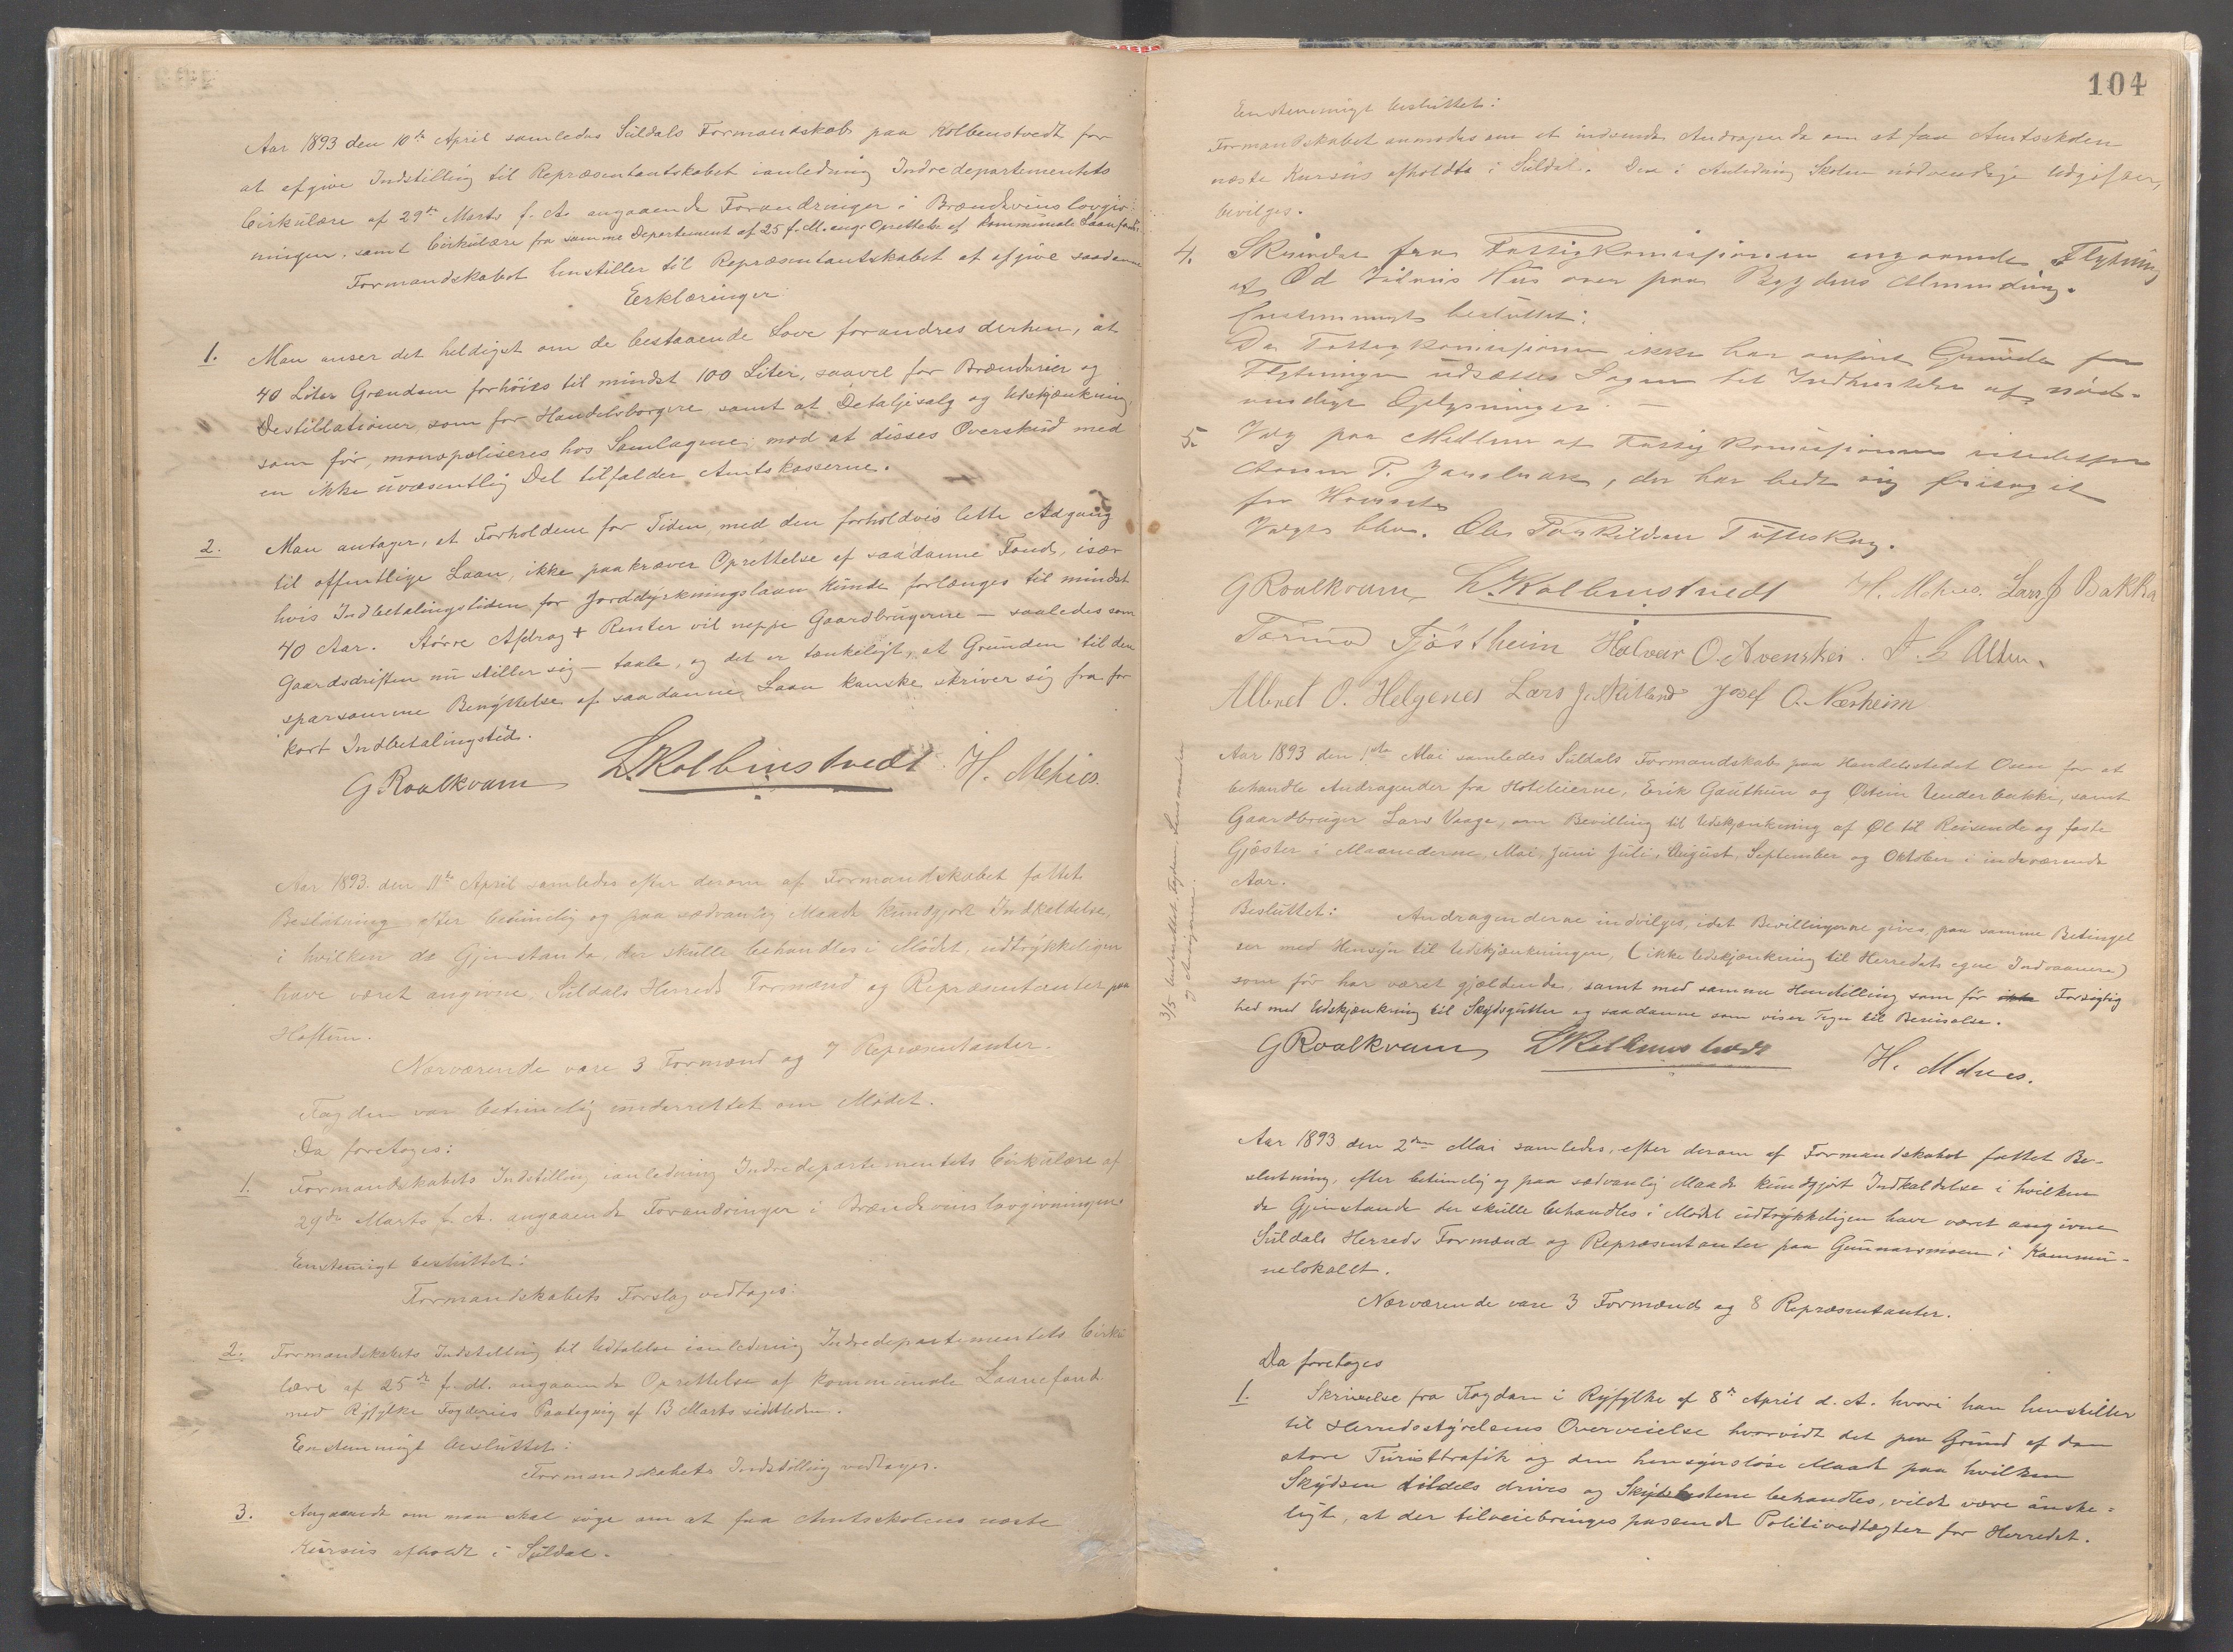 Aar 1893 den 10de April samledes Suldals Formandskab paa Kolbenstvedt for
at afgive Indstilling til Repræsentantskabet ianledning Indredepartementets
Cirkulære af 29de Marts f. A. angaaende Forandringer i Brændevinslovgiv-
ningen, samt Cirkulære fra samme Departement af 25 f. M. ang. Oprettelse af kommunale Laanefond.
Formandskabet henstiller til Repræsentantskabet at afgive saadanne
Erklæringer:
1. Man anser det heldigst om de bestaaende Love forandres derhen, at
40 Liter Grændsen forhöies til mindst 100 Liter, saavel for Brænderier og
Destillationer, som for Handelsborgere samt at Detaljesalg og Udskjænkning,
som för, monopoliseres hos Samlagene, mod at disses Overskud med
en ikke uvæsentlig Del tilfalder Amtskasserne.
2. Man antager, at Forholdene for Tiden, med den forholdvis lette Adgang
til offentlige Laan, ikke paakræver Oprettelse af saadanne Fond, især
hvis Indbetalingstiden for Jorddyrkningslaan kunde forlænges til mindst
40 Aar. Större Afdrag + Renter vil neppe Gaardbrugerne – saaledes som
Gaardsdriften nu stiller sig – taale, og det er tænkeligt, at Grunden til den
sparsomme Benyttelse af saadanne Laan kanske skriver sig fra for
kort Indbetalingstid.
G Roalkvam L. Kolbenstvedt. H. Mehus.
Aar 1893 den 11te April samledes efter derom af Formandskabet fattet
Beslutning efter betimelig og paa sædvanlig Maade kundgjort Indkaldelse,
i hvilken de Gjenstande, der skulle behandles i Mødet, udtrykkeligen
have været angivne, Suldals Herreds Formænd og Repræsentanter paa
Haftun.
Nærværende vare 3 Formænd og 7 Repræsentanter.
Fogden var betimelig underrettet om Mödet.
Da foretoges:
1. Formandskabets Indstilling ianledning Indredepartementets Cirkulære af
29de Marts f. A. angaaende Forandringer i Brændevinslovgivningen.
Enstemigt besluttet:
Formandskabets Forslag vedtages.
2. Formandskabets Indstilling til Udtalelse ianledning Indredepartementets Cirku
lære af 25de f. M. angaaende Oprettelse af kommunale Laanefond
med Ryfylke Fogderies Paategnig af 13 Marts sidstleden.
Enstemmigt besluttet:
Formandskabets Indstilling vedtages.
3. Angaaende om man skal söge om at faa Amtsskolens næste
Kursus afholdt i Suldal.
104
Enstemmigt besluttet:
Formandskabet anmodes om at indsende Andragende om at faa Amtsskolen
næste Kursus afholdte i Suldal. De i Anledning Skolen nödvendige Udgifter,
bevilges.
4. Skrivelse fra Fattigkomissionen angaaende Flytning
af Od Hus over paa Bygdens Almending.
Enstemmigt besluttet:
Da Fattigkomissionen ikke har anfört Grunde for
Flytningen udsættes Sagen til Indhentelse af nöd-
vendige Oplysninger. –
5. Valg paa Medlem af Fattigkomissionen istedetfor
P. , der har bedt sig frisaget
for Hvervet.
Valgt blev. Ole Torkildsen Tufteskog.
G Roalkvam, L. Kolbenstvedt H. Mehus. Lars J Bakka
Tormod Fjöstheim Halvar O. J. L
O. Helgenes Lars J. Josef O. Nærheim
3/5 Underrettet Fogden, Lensmanden
og Ansögerne.
Aar 1893 den 1ste Mai samledes Suldals Formandskab paa Handelsstedet Osen for at
behandle Andragender fra Hoteleierne, Erik Gauthun og Østein Underbakke, samt
Gaardbruger Lars Vaage, om Bevilling til Udskjænkning af Øl til Reisende og faste
Gjæster i Maanederne, Mai, Juni Juli, August, September og Oktober i indeværende
Aar.
Besluttet: Andragenderne indvilges, idet Bevillingerne gives paa samme Betingel
ser med Hensyn til Udskjænkningen, (ikke Udskjænkning til Herredets egne Indvaanere)
som för har været gjældende, samt med samme Henstilling som för ikke Forsigtig
hed med Udskjænkning til Skydsgutter og saadanne som viser Tegn til Beruselse.
G Roalkvam L Kolbenstvedt H. Mehus.
Aar 1893 den 2den Mai samledes, efter derom af Formandskabet fattet Be-
slutning, efter betimelig og paa sædvanlig Maade kundgjort Indkaldelse i hvilken
de Gjenstande der skulle behandles i Mödet udtrykkeligen have været angivne
Suldals Herreds Formænd og Repræsentanter paa Gunnarsmoen i Kommu-
nelokalet.
Nærværende vare 3 Formænd og 8 Repræsentanter.
Da foretoges
1. Skrivelse fra Fogden i Ryfylke af 8de April d. A. hvori han henstiller
til Herredsstyrelsens Overveielse hvorvidt det paa Grund af den
store Turisttrafik og den hensynslöse Maade paa hvilken
Skydsen tildels drives og Skydshestene behandles, vilde være önske-
ligt, at der tilveiebringes passende Politivedtægter for Herredet.